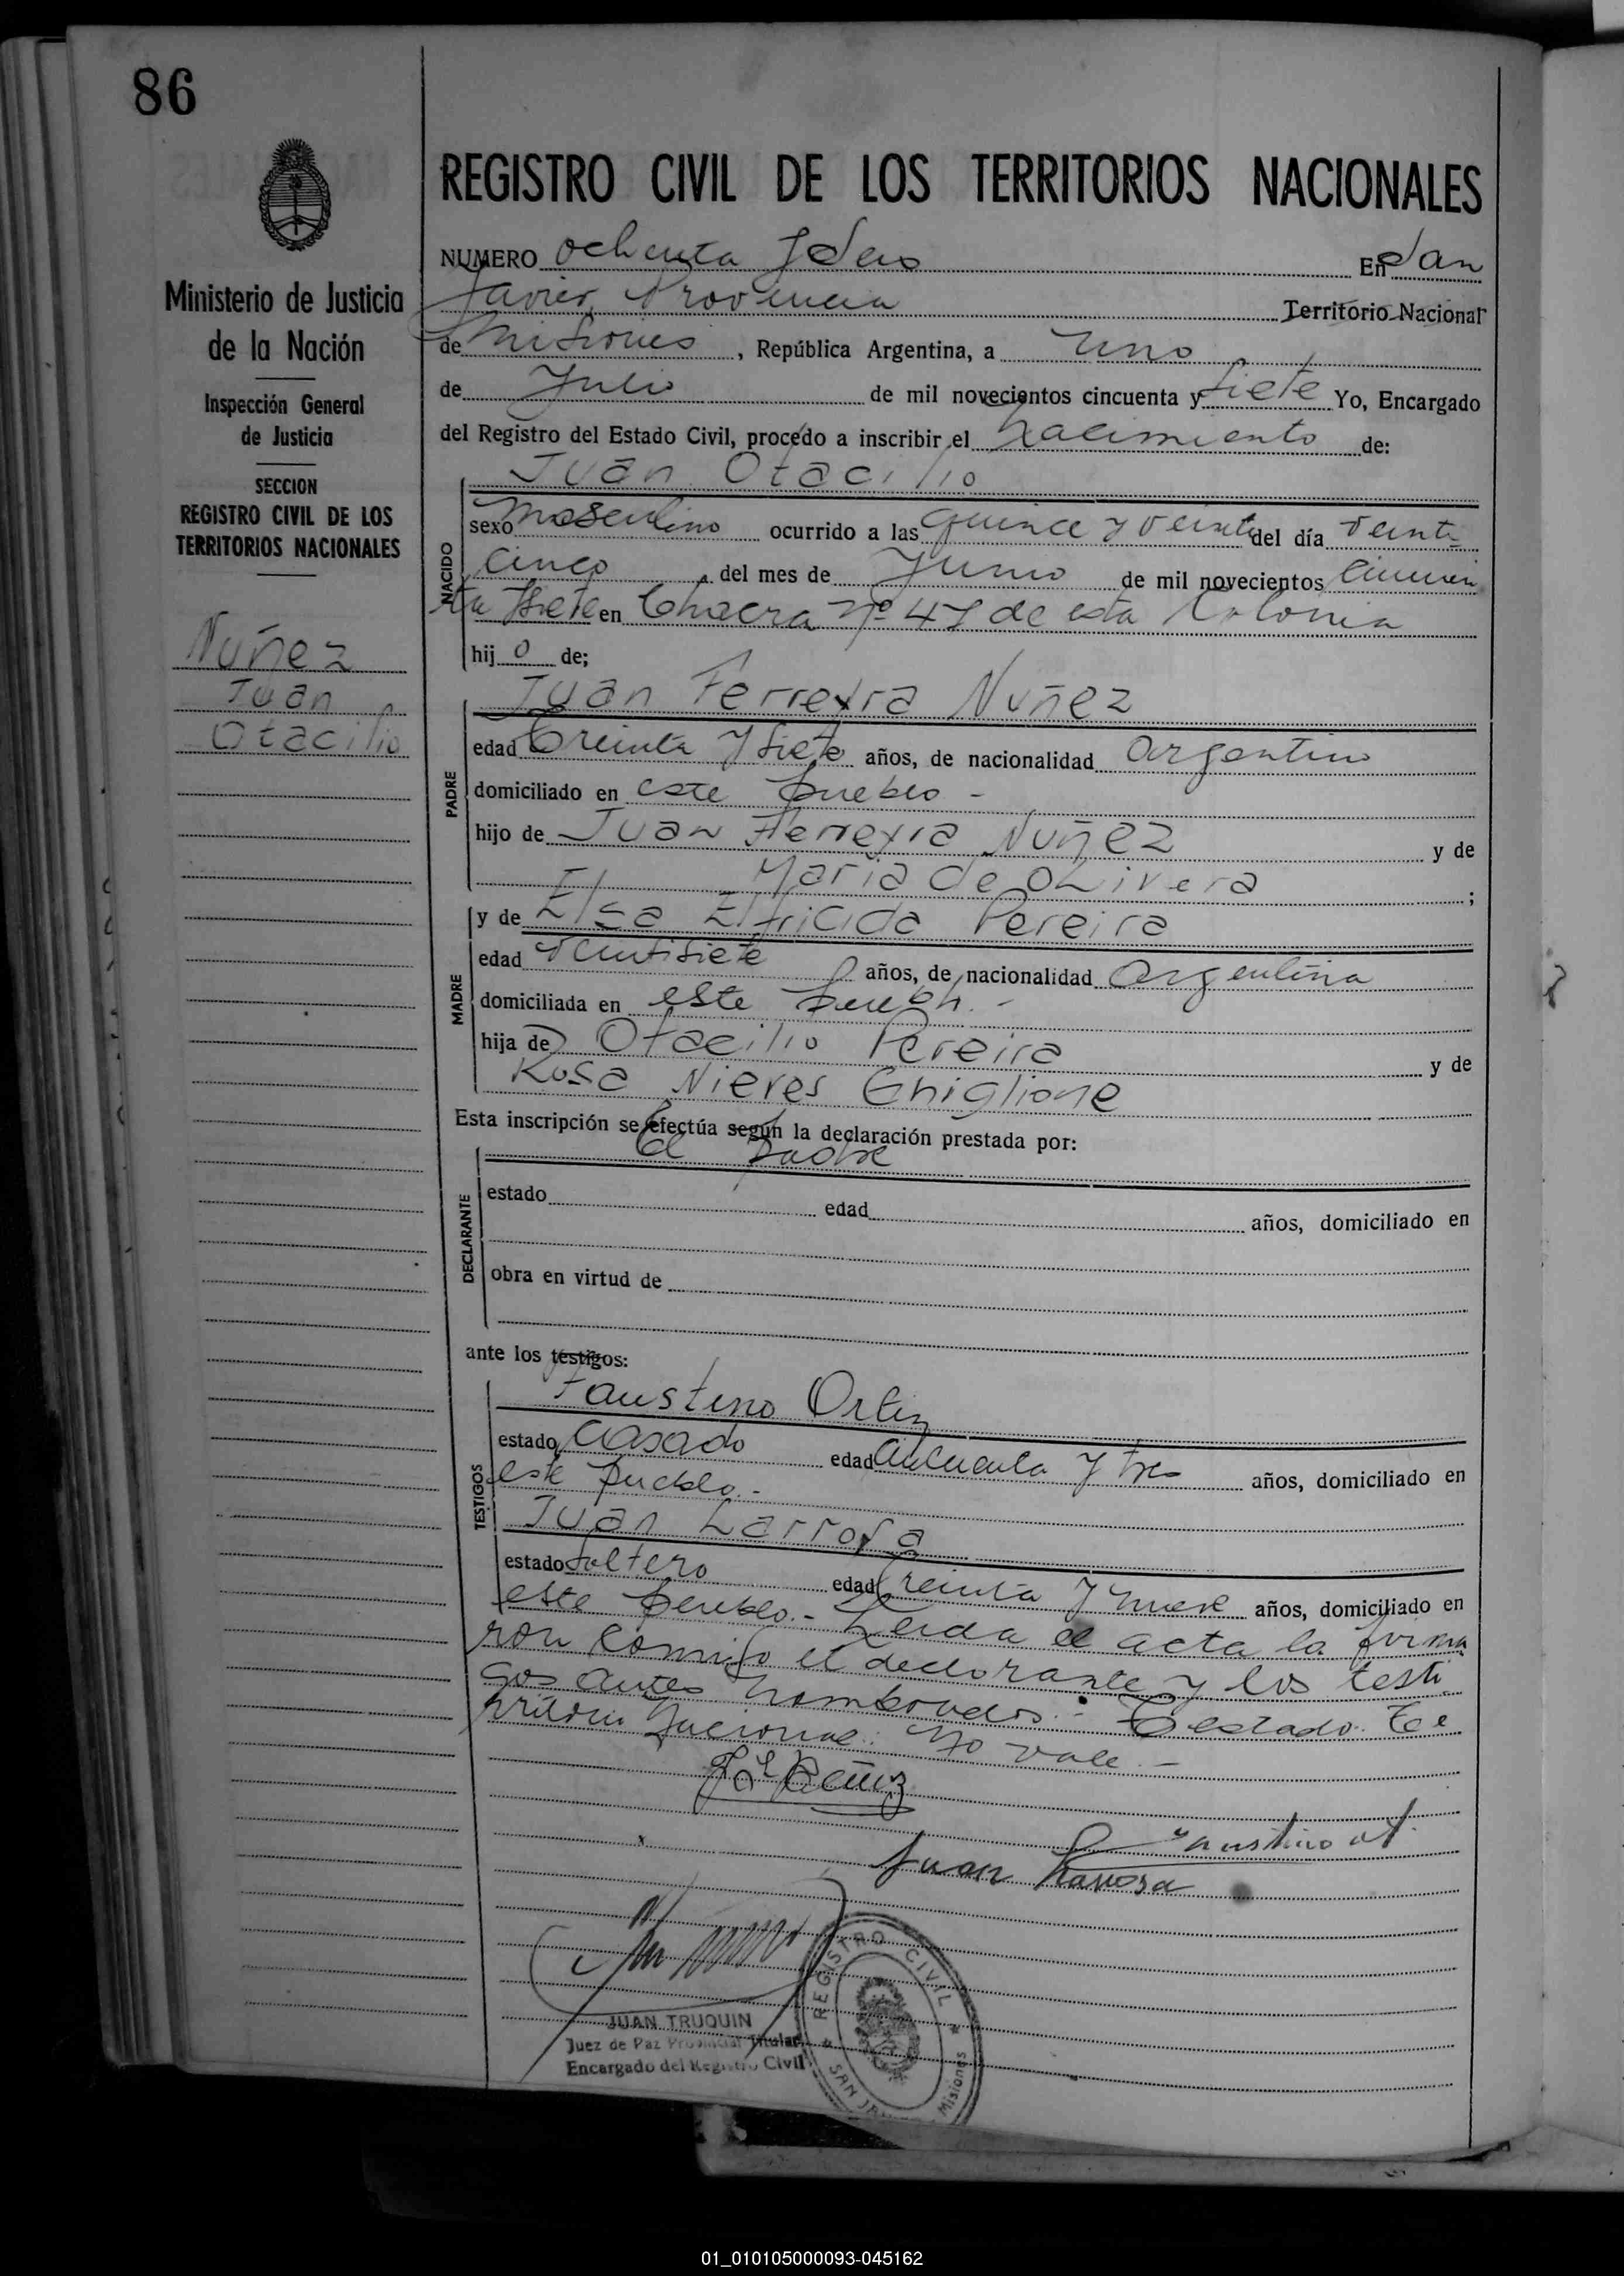 86
REGISTRO CIVIL DE LOS TERRITORIOS NACIONALES
Ministerio de Justicia
de la Nación
Inspección General
de Justicia
SECCION
REGISTRO CIVIL DE LOS
TERRITORIOS NACIONALES
Nuñez
Juan
Otacilio
NUMERO ochenta y seis En San
Javier Provincia Territorio Nacional
de Misiones, República Argentina, a uno
de Julio de mil novecientos cincuenta y siete Yo, Encargado
del Registro del Estado Civil, procedo a inscribir el nacimiento de:
Juan Otacilio
NACIDO
sexo masculino ocurrido a las quince y veinte del día veinti
cinco del mes de Junio de mil novecientos cincuen
ta y siete en Chacra nº 47 de esta Colonia
hijo de;
Juan Ferreyra Nuñez
PADRE
edad treinta y siete años, de nacionalidad argentino
domiciliado en este pueblo -
hijo de Juan Ferreyra Nuñez y de
Maria de Olivera ;
y de Elsa Elfricida Pereira
MADRE
edad veintisiete años, de nacionalidad argentina
domiciliada en este pueblo. -
hija de Otacilio Pereira y de
Rosa Nieves Ghiglione
Esta inscripción se efectúa según la declaración prestada por:
El padre
DECLARANTE
estado edad años, domiciliado en
obra en virtud de
ante los testigos:
Faustino Ortiz
TESTIGOS
estado casado edad cincuenta y tres años, domiciliado en
este pueblo. -
Juan Larrosa
estado soltero edad treinta y nueve años, domiciliado en
este pueblo. - Leida el acta la firma
ron comigo el declarante y los testi
gos antes nombrados. - Testado: Te
rritorio Nacional: no vale. -
Juan Larrosa
JUAN TRUQUIN
Juez de Paz Provincial Titular
Encargado del Registro Civil
REGISTRO CIVIL
SAN JAVIER Misiones
01_010105000093-045162